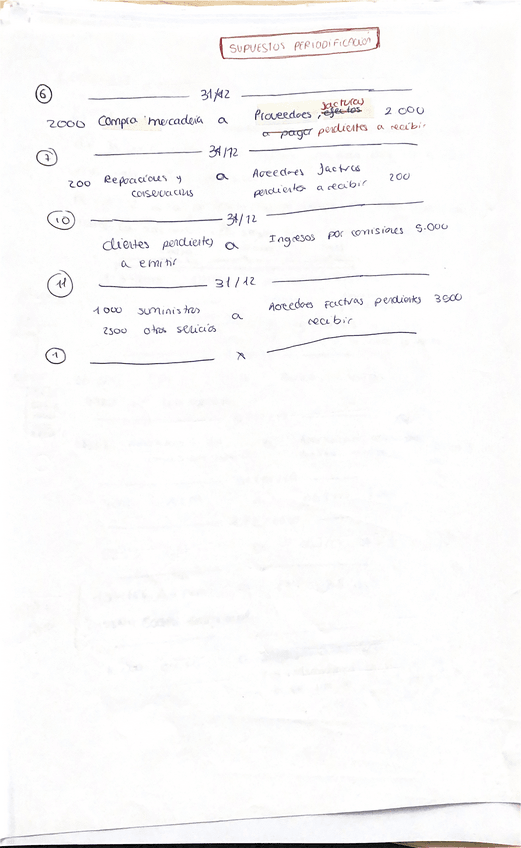 SUPUESTOS PERIODIFICACIÓN
6 31/12
2000 Compra mercadería a Proveedores, efectos facturas 2 000
a pagar pendientes a recibir
7 31/12
200 Reparaciones y a Acreedores facturas 200
conservación pendientes a recibir
10 31/12
Clientes pendientes a Ingresos por comisiones 5.000
a emitir
11 31/12
1000 suministros a Acreedores Facturas pendientes 3500
2500 otros servicios recibir
1 x